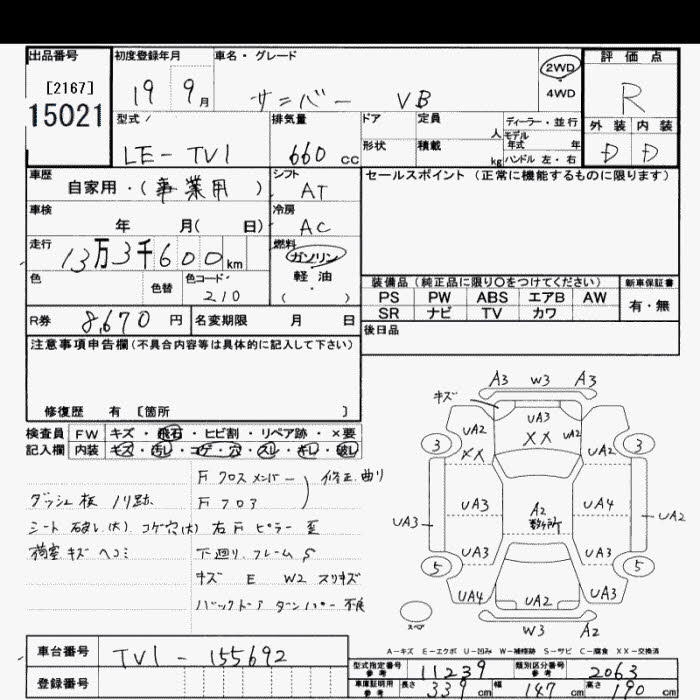 出品番号 初度登録年月 車名・グレード 評価点
[2167] 19 9月 サンバー VB 2WD ・ 4WD R
15021 型式 排気量 ドア 定員 人 ディーラー・並行 外装 内装
LE-TV1 660cc 形状 積載 kg モデル年式 年 ハンドル 左・右 D D
車歴 自家用・(事業用) シフト AT セールスポイント(正常に機能するものに限ります)
車検 年 月( 日) 冷房 AC
走行 13万3千600km 燃料 ガソリン
色 色替 色コード 210 軽油 ( ) 装備品(純正品に限り○をつけてください) 新車保証書
PS PW ABS エアB AW 有・無
R券 8,670円 名変期限 月 日 SR ナビ TV カワ
注意事項申告欄(不具合内容等は具体的に記入して下さい) 後日品
修復歴 有 [箇所 ]
検査員 FW キズ・飛石・ヒビ割・リペア跡・×要
記入欄 内装 キズ・汚レ・コゲ・穴・スレ・キレ・破レ
F クロスメンバー 修正 曲り
ダッシュ板 ノリ跡 F フロア
シート 破レ(大) コゲ穴(大) 右F ピラー 歪
荷室 キズ ヘコミ 下廻り フレーム S
キズ E W2 スリキズ
バックドア ダンパー 不良
A3 W3 A3
キズ
UA3
UA2 XX UA2 UA2
XX
3 3
UA3 A2 UA4
UA3 数ヶ所 UA2
UA3 UA3
5 5
UA4 UA2 UA3
スペア W3 A2
A-キズ E-エクボ U-凹み W-補修跡 S-サビ C-腐食 XX-交換済
車台番号 TV1-155692
型式指定番号 参考 11239 類別区分番号 参考 2063
登録番号 車庫証明用 参考 長さ 339cm 幅 147cm 高さ 190cm